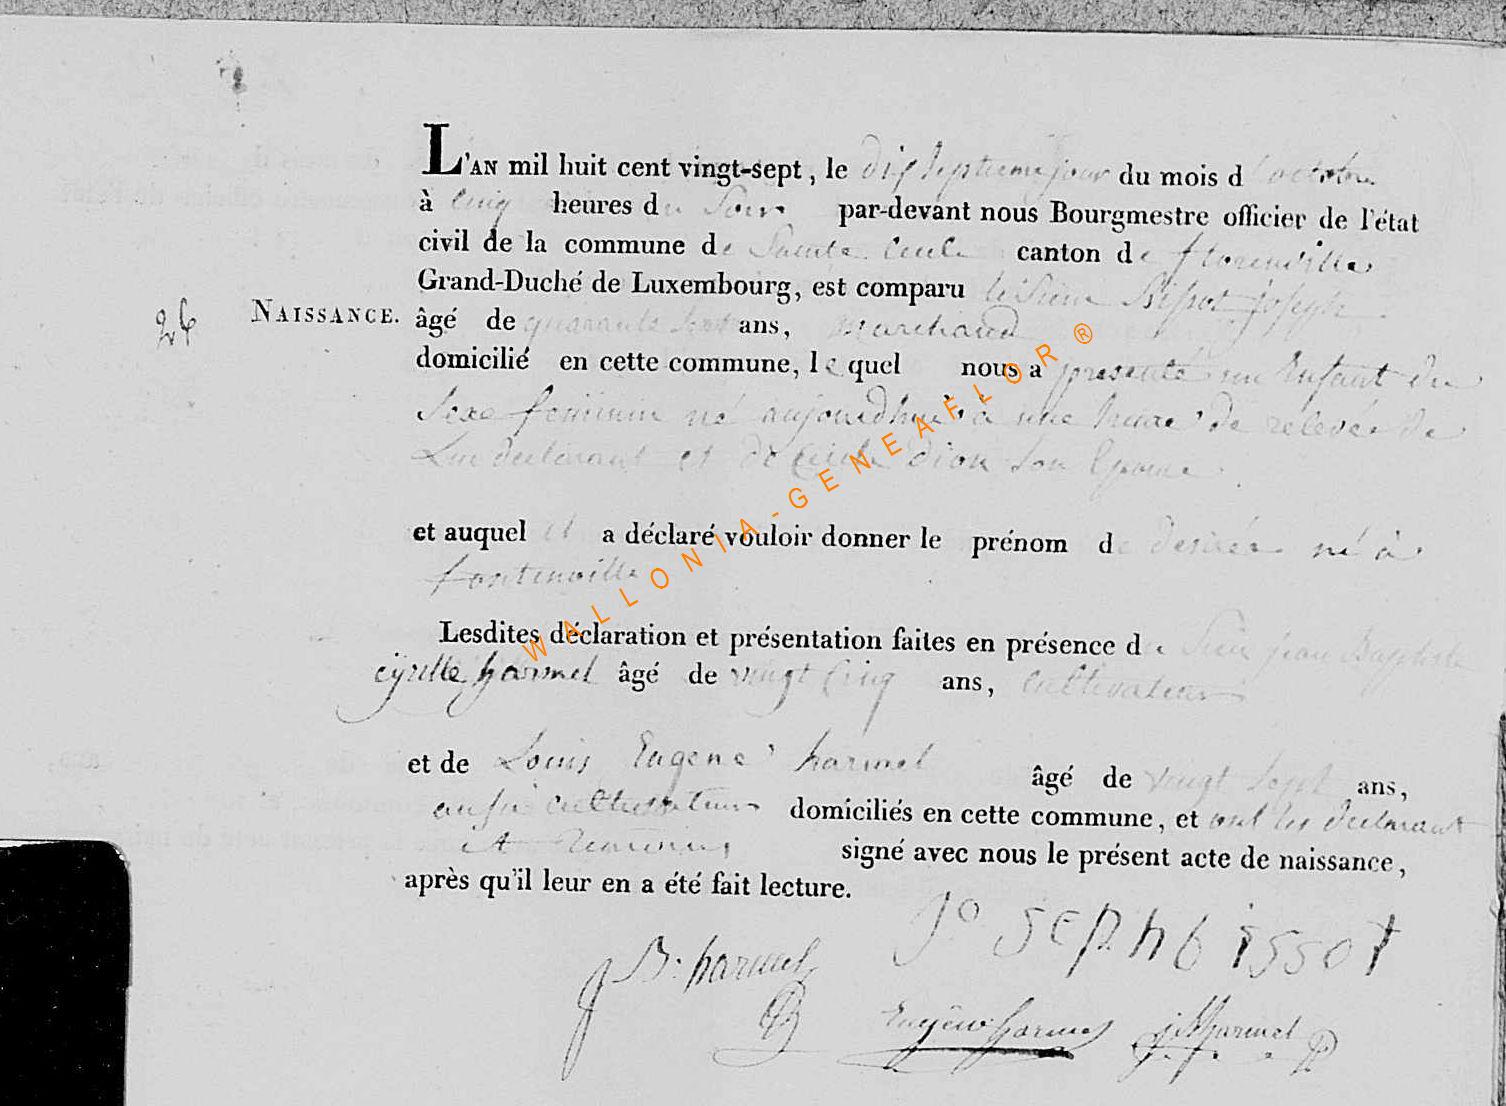 L'AN mil huit cent vingt-sept, le dix septieme jour du mois d'octobre
à cinq heures du Soir par-devant nous Bourgmestre officier de l'état
civil de la commune de Sainte Cecile canton de florenville
Grand-Duché de Luxembourg, est comparu le Sieur Bissot joseph
26
NAISSANCE.
âgé de quarante sept ans, marchand
domicilié en cette commune, lequel nous a presenté un Enfant du
Sexe feminin né aujourdhui à une heure de relevée de
Lui declarant et de Cecile dion son Epouse
et auquel il a déclaré vouloir donner le prénom de desirée né à
fontenoille
Lesdites déclaration et présentation faites en présence de Sieur jean Baptiste
cyrille harmel âgé de vingt cinq ans, cultivateur
et de Louis Eugene harmel âgé de vingt sept ans,
aussi cultivateur domiciliés en cette commune, et ont les declarant
et temoins signé avec nous le présent acte de naissance,
après qu'il leur en a été fait lecture.
Josephbissot
J B: harmel
Eugène harmel
harmel
WALLONIA-GENEAFLOR®